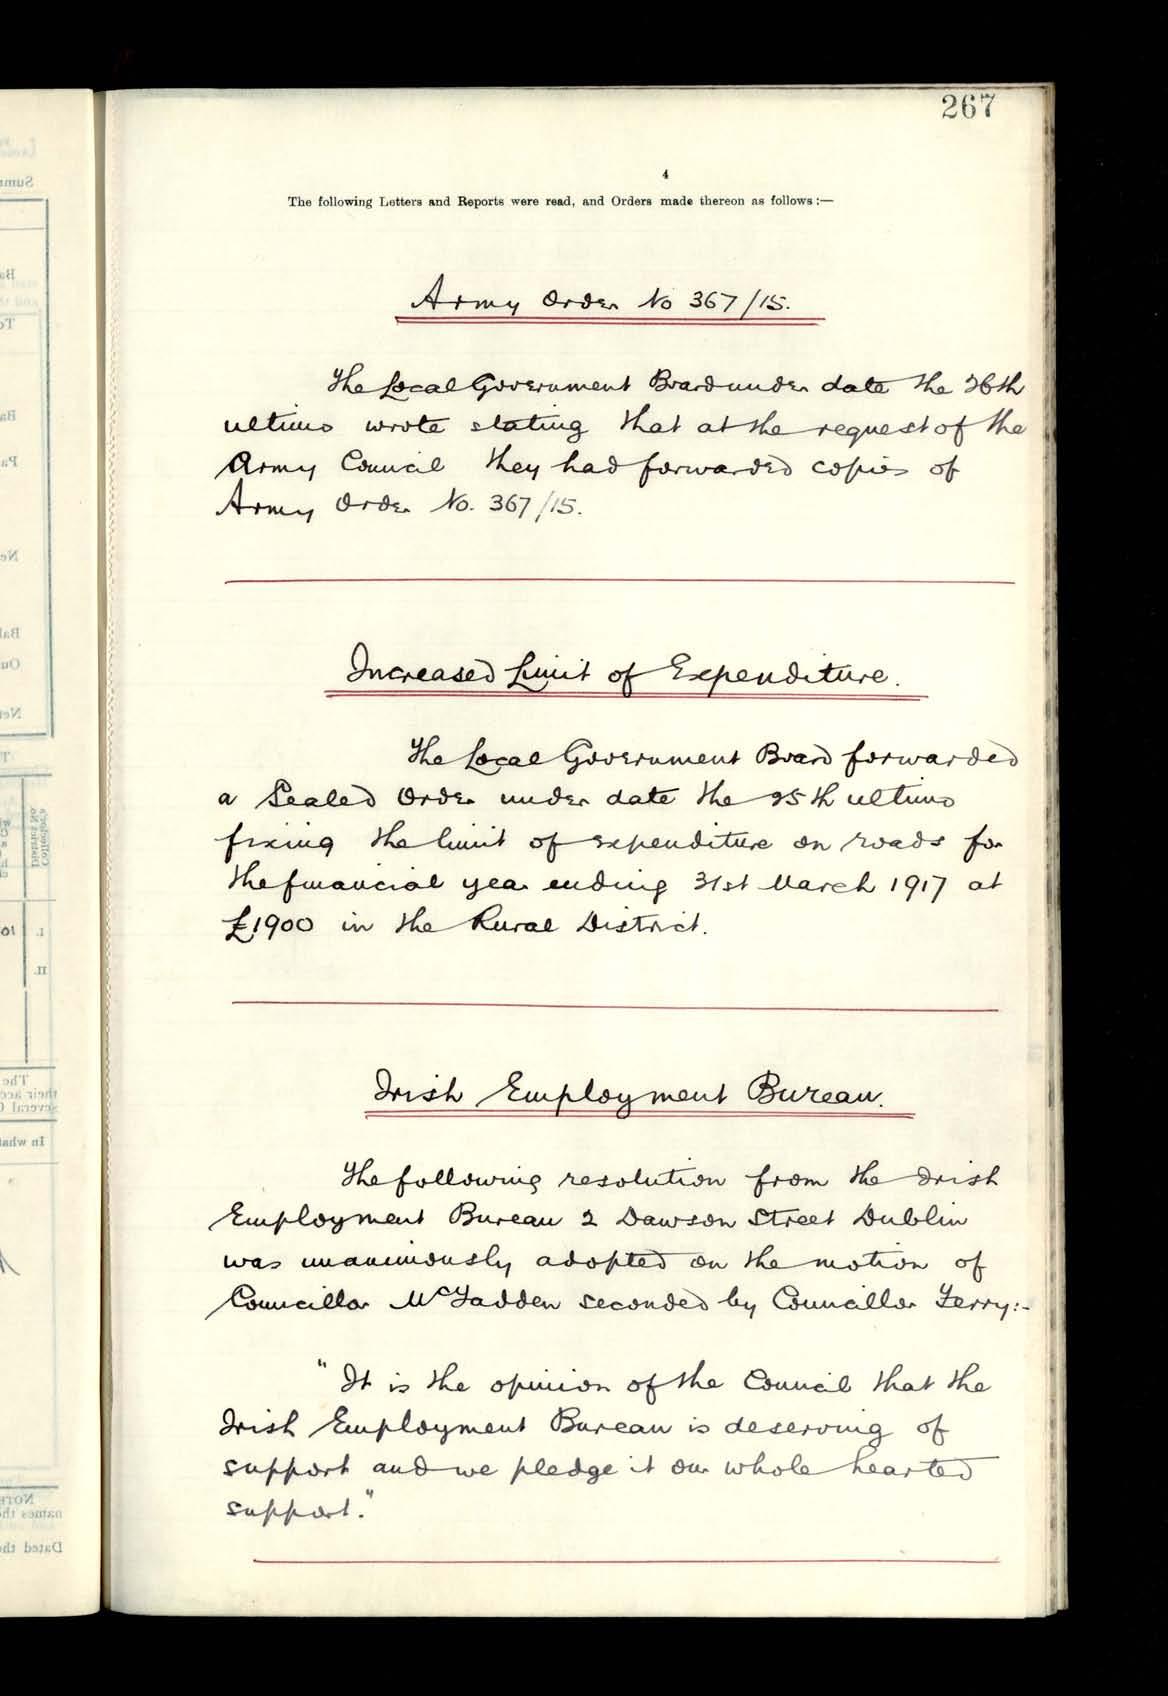 267
4
The following Letters and Reports were read, and Orders made thereon as follows :—
Army Order No 367/15.
The Local Government Board under date the 26th
ultimo wrote stating that at the request of the
Army Council they had forwarded copies of
Army Order No. 367/15.
Increased Limit of Expenditure.
The Local Government Board forwarded
a Sealed Order under date the 25th ultimo
fixing the limit of expenditure on roads for
the financial year ending 31st March 1917 at
£1900 in the Rural District.
Irish Employment Bureau.
The following resolution from the Irish
Employment Bureau 2 Dawson Street Dublin
was unanimously adopted on the motion of
Councillor McFadden seconded by Councillor Ferry:-
"It is the opinion of the Council that the
Irish Employment Bureau is deserving of
support and we pledge it our whole hearted
support."